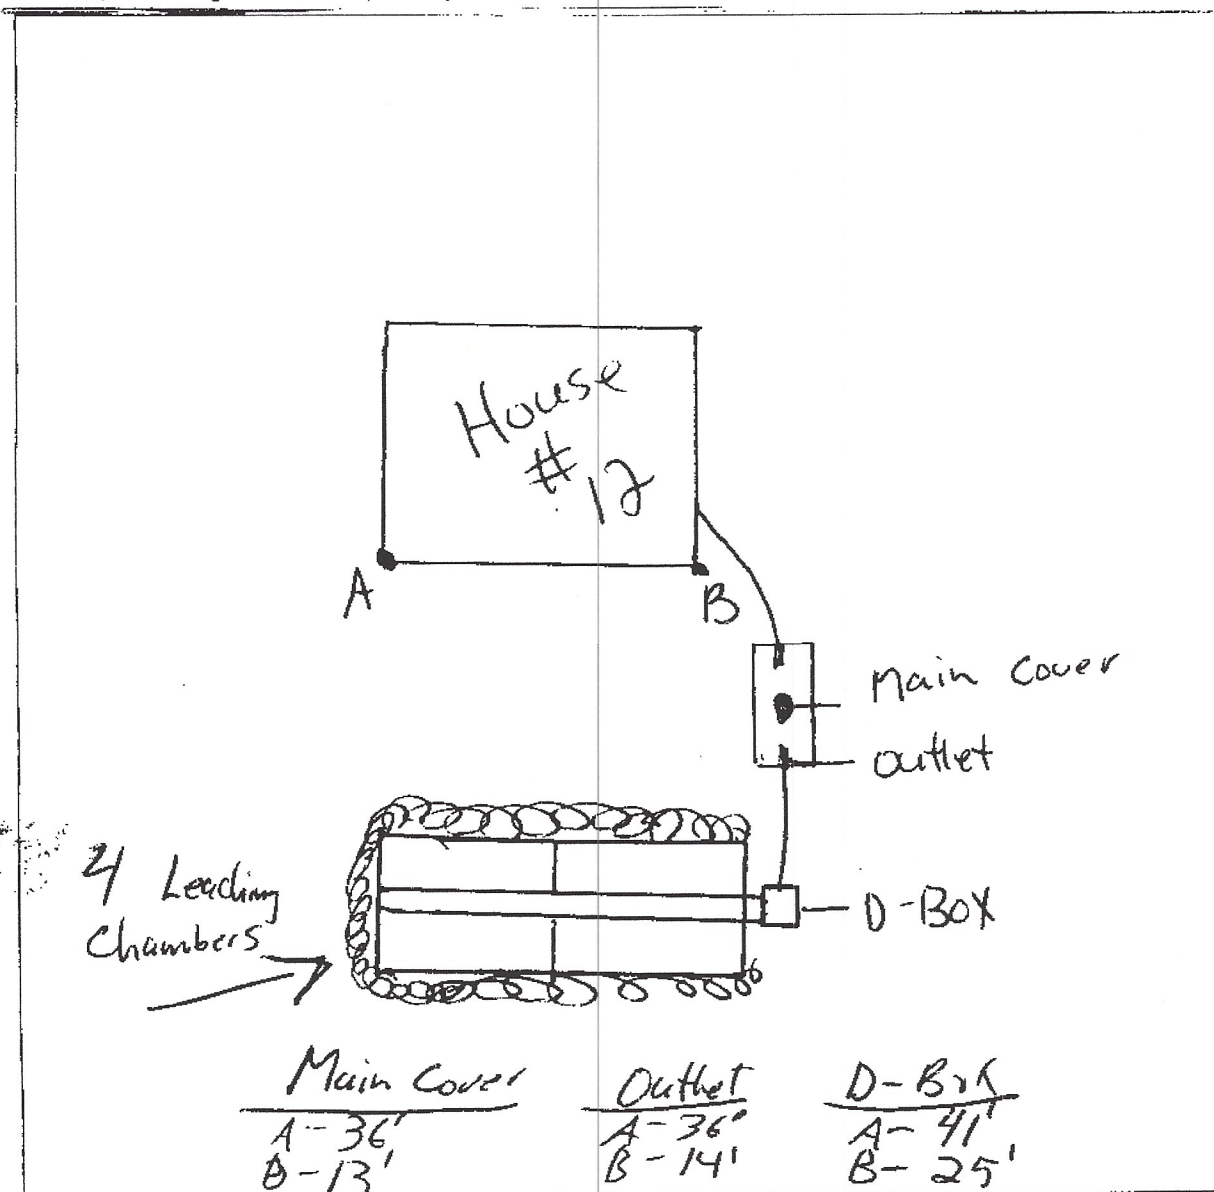 House
# 12
A
B
Main Cover
outlet
4 Leaching
Chambers
D-BOX
Main Cover
A-36'
B-13'
Outlet
A-36'
B-14'
D-Box
A-41'
B-25'